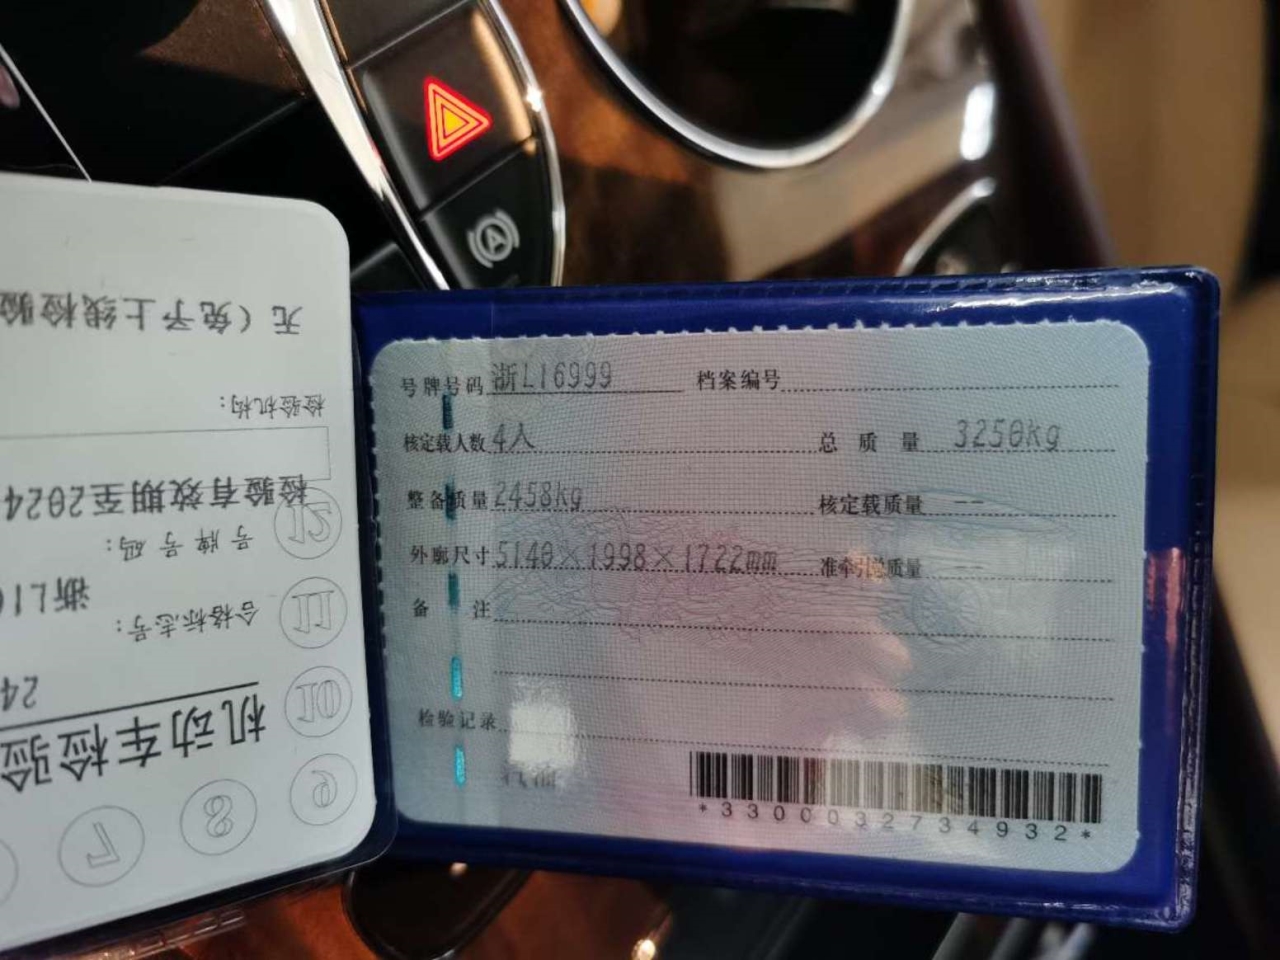 无（免予上线检验
检验机构：
检验有效期至2024
号牌号码：
浙L16
合格标志号：
24
机动车检验
12
11
10
9
8
7
号牌号码 浙L16999 档案编号
核定载人数 4人 总质量 3250kg
整备质量 2458kg 核定载质量 --
外廓尺寸 5140×1998×1722mm 准牵引总质量 --
备注
检验记录
汽油
*3300032734932*